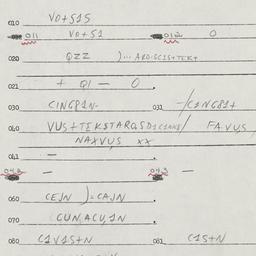 010 VO+S1S
011 VO+S1 012 0
020 QZZ )... ARDISCIS+TER+
021 + Q1 — 0.
030 C1NG81N- 031 -/C1NG81+
040 VUS++TEKSTARQSD1C1ANS/ FAVUS,
NAXVUS xx
041 —
042 — 043 —
060 CEJN )=CAJN
070 CUN,ACU,1N
080 C1V1S+N 081 C1S+N